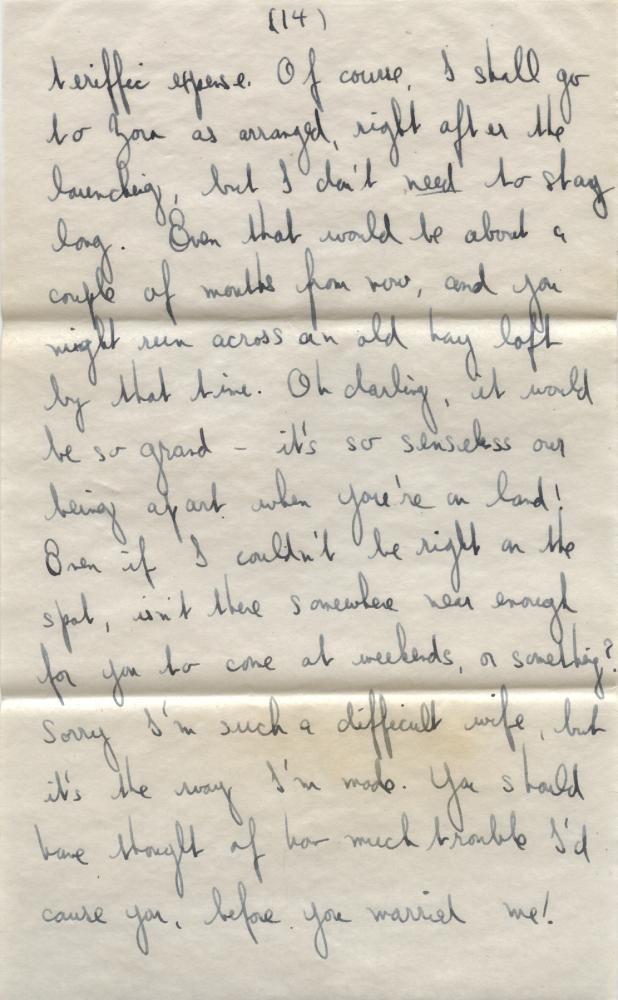 (14)
teriffic expense. Of course, I shall go
to Zora as arranged, right after the
launching, but I don't need to stay
long. Even that would be about a
couple of months from now, and you
might run across an old hay loft
by that time. Oh darling, it would
be so grand - it's so senseless our
being apart when you're on land!
Even if I couldn't be right on the
spot, isn't there somewhere near enough
for you to come at weekends, or something?
Sorry I'm such a difficult wife, but
it's the way I'm made. You should
have thought of how much trouble I'd
cause you, before you married me!